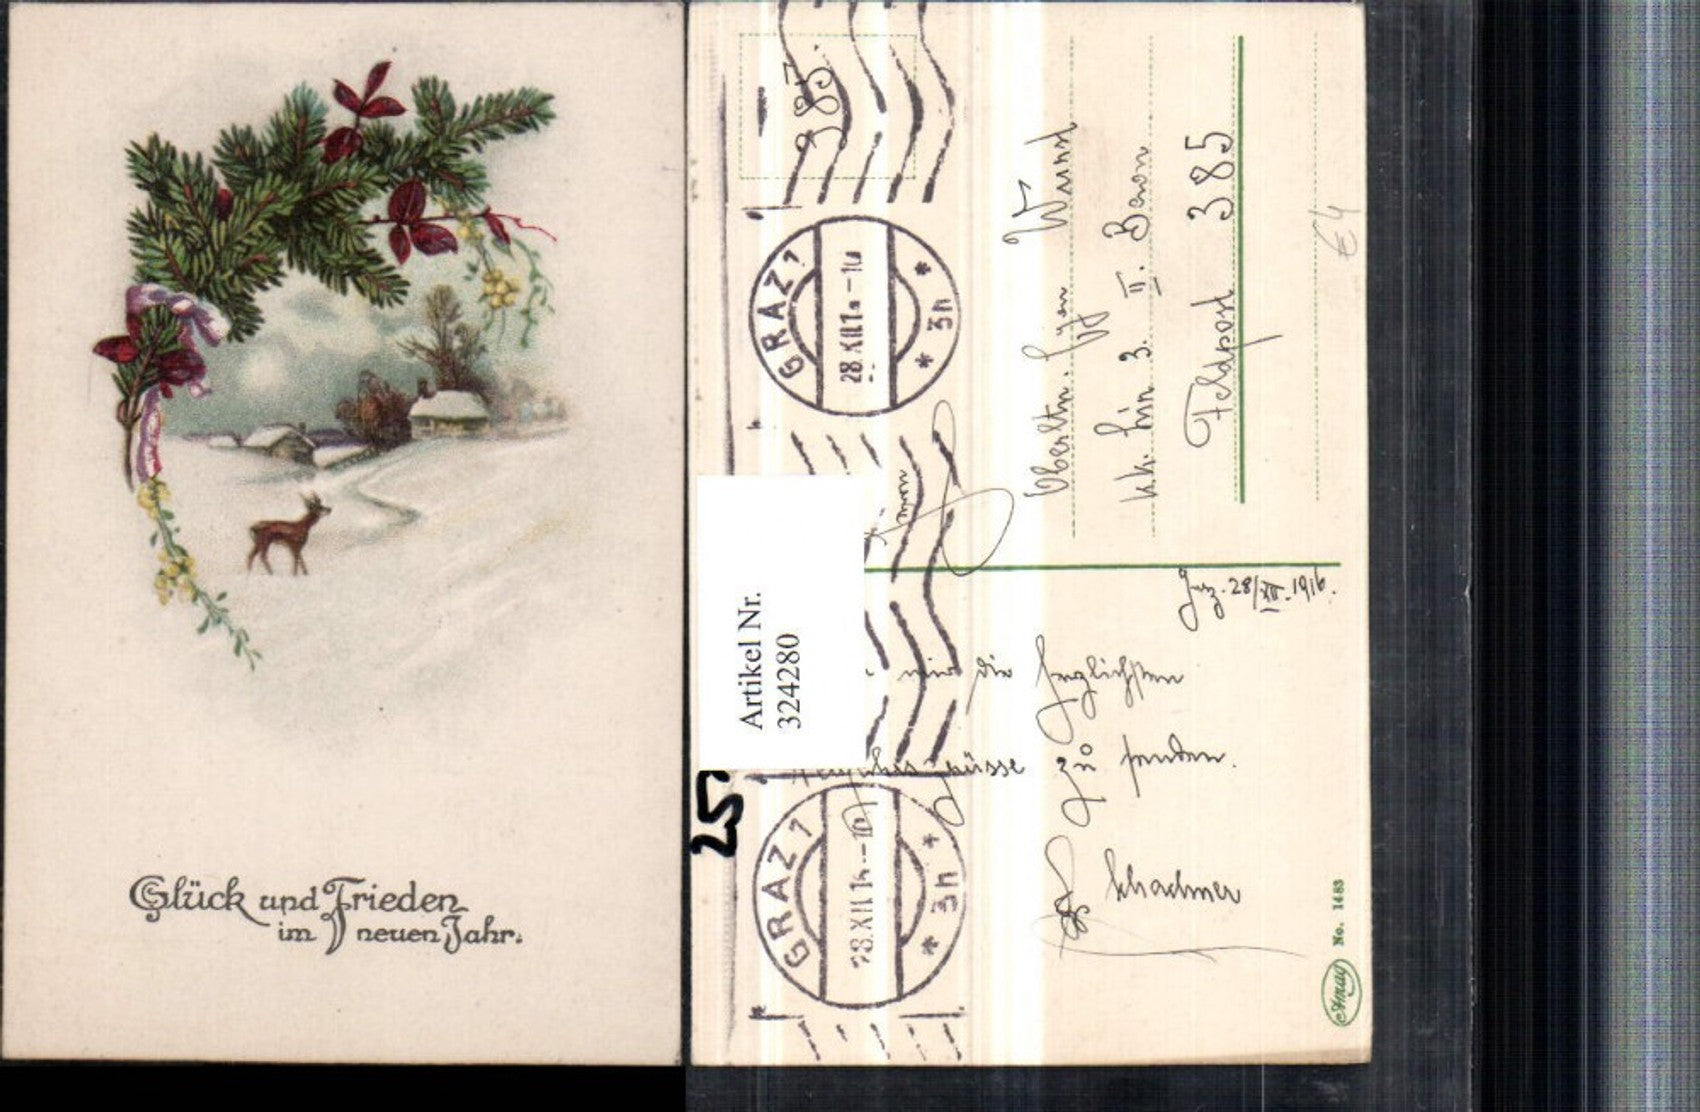 Glück und Frieden
im neuen Jahr.
385
GRAZ 1
28.XII.1 -10
* 3h *
Wunst
kk. 3. II. Baon
Feldpost 385
€4
Artikel Nr.
324280
25
28/XII. 1916.
mir die herzlichsten
zu senden.
Schachner
GRAZ 1
28.XII.16--10
* 3h *
Amag
No. 1483